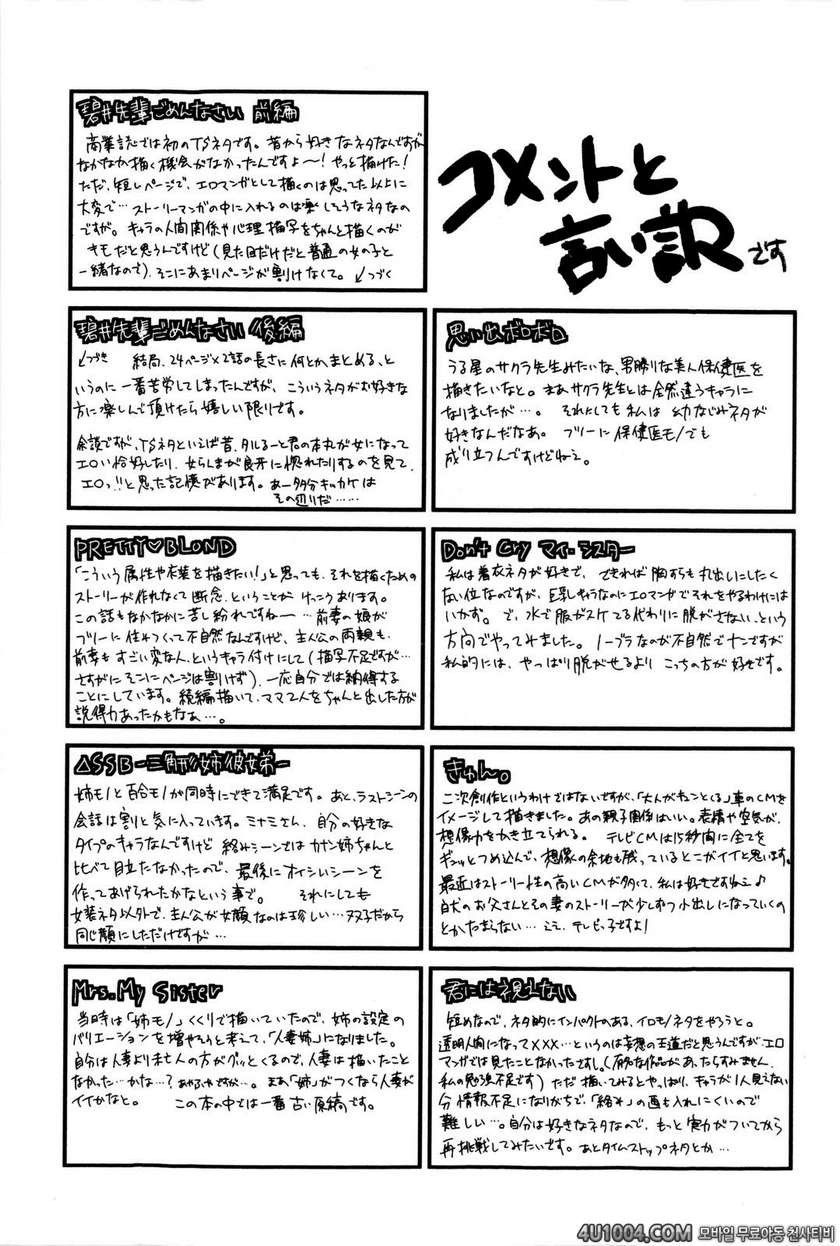 コメントと
言い訳です
碧井先輩ごめんなさい 前編
商業誌では初のTSネタです。昔から好きなネタなんですが
なかなか描く機会がなかったんですよ〜!やっと描けた!
ただ、短いページで、エロマンガとして描くのは思ってた以上に
大変で…ストーリーマンガの中に入れるのは楽しそうなネタなの
ですが。キャラの人間関係や心理描写をちゃんと描くのが
キモだと思うんですけど(見た目だけだと普通の女の子と
一緒なので)、そこにあまりページが割けなくて。↙つづく
碧井先輩ごめんなさい 後編
↙つづき 結局、24ページ×2話の長さに何とかまとめる、と
いうのに一番苦労してしまったんですが、こういうネタがお好きな
方に楽しんで頂けたら嬉しい限りです。
余談ですが、TSネタといえば昔、タルるート君の本丸が女になって
エロい恰好したり、女らんまが良牙に惚れたりするのを見て、
エロッ!!と思った記憶があります。あー多分キッカケは
その辺りだ……
思い出ボロボロ
うる星のサクラ先生みたいな、男勝りな美人保健医を
描きたいなと。まあサクラ先生とは全然違うキャラに
なりましたが…。それにしても私は幼なじみネタが
好きなんだなあ。フツーに保健医モノでも
成り立つんですけどねえ。
PRETTY♡BLOND
「こういう属性や衣装を描きたい!」と思っても、それを描くための
ストーリーが作れなくて断念ということがけっこうあります。
この話もなかなかに苦し紛れですねー…前妻の娘が
フツーに住んでて不自然なんですけど、主人公の両親も、
前妻もすごい変な人、というキャラ付けにして(描写不足ですが…
さすがにそこにページは割けず)、一応自分では納得する
ことにしています。続編描いて、ママ2人をちゃんと出した方が
説得力あったかもなぁ…。
Don't Cry マイ・シスター
私は着衣ネタが好きで、できれば胸すらも丸出しにしたく
ない位なのですが、巨乳キャラなのにエロマンガでそれをやるわけには
いかず。で、水で服がスケてる代わりに脱がさない、という
方向でやってみました。ノーブラなのが不自然ですが
私的には、やっぱり脱がせるよりこっちの方が好きです。
△SSB-三角形/姉/彼女/弟-
姉モノと百合モノが同時にできて満足です。あと、ラストシーンの
会話は割と気に入っています。ミナミさん、自分の好きな
タイプのキャラなんですけど絡みシーンではカナン姉ちゃんと
比べて目立たなかったので、最後にオイシいシーンを
作ってあげられたかなという事で。それにしても
女装ネタ以外で、主人公が女顔なのは珍しい…双子だから
同じ顔にしただけですが…
きゅん。
二次創作というわけではないですが、「大人がキュンとくる」車のCMを
イメージして描きました。あの親子関係はいい。表情や空気が、
想像力をかき立てられる。テレビCMは15秒間に全てを
ギュッとつめ込んで、想像の余地も残っているとこがイイと思います。
最近はストーリー性の高いCMが多くて、私は好きですねえ♪
白犬のお父さんとその妻のストーリーが少しずつ小出しになっていくの
とかたまらない…ええ、テレビっ子ですよ!
Mrs.My Sister
当時は「姉モノ」くくりで描いていたので、姉の設定の
バリエーションを増やそうと考えて、「人妻姉」になりました。
自分は人妻より未亡人の方がグッとくるので、人妻は描いたこと
なかった…かな…?あやふやですが…。まあ「姉」がつくなら人妻が
イイかなと。この本の中では一番古い原稿です。
君には視えない
短めなので、ネタ的にインパクトのある、イロモノネタをやろうと。
透明人間になって×××…というのは妄想の王道だと思うんですが、エロ
マンガでは見たことなかったですし。(有名な作品があったらすみません、
私の勉強不足です)ただ描いてみるとやっぱり、キャラが1人見えない
分情報不足になりがちで、「絡み」の画も入れにくいので
難しい…。自分は好きなネタなので、もっと実力がついてから
再挑戦してみたいです。あとタイムストップネタとか…
4U1004.COM 모바일 무료야동 천사티비